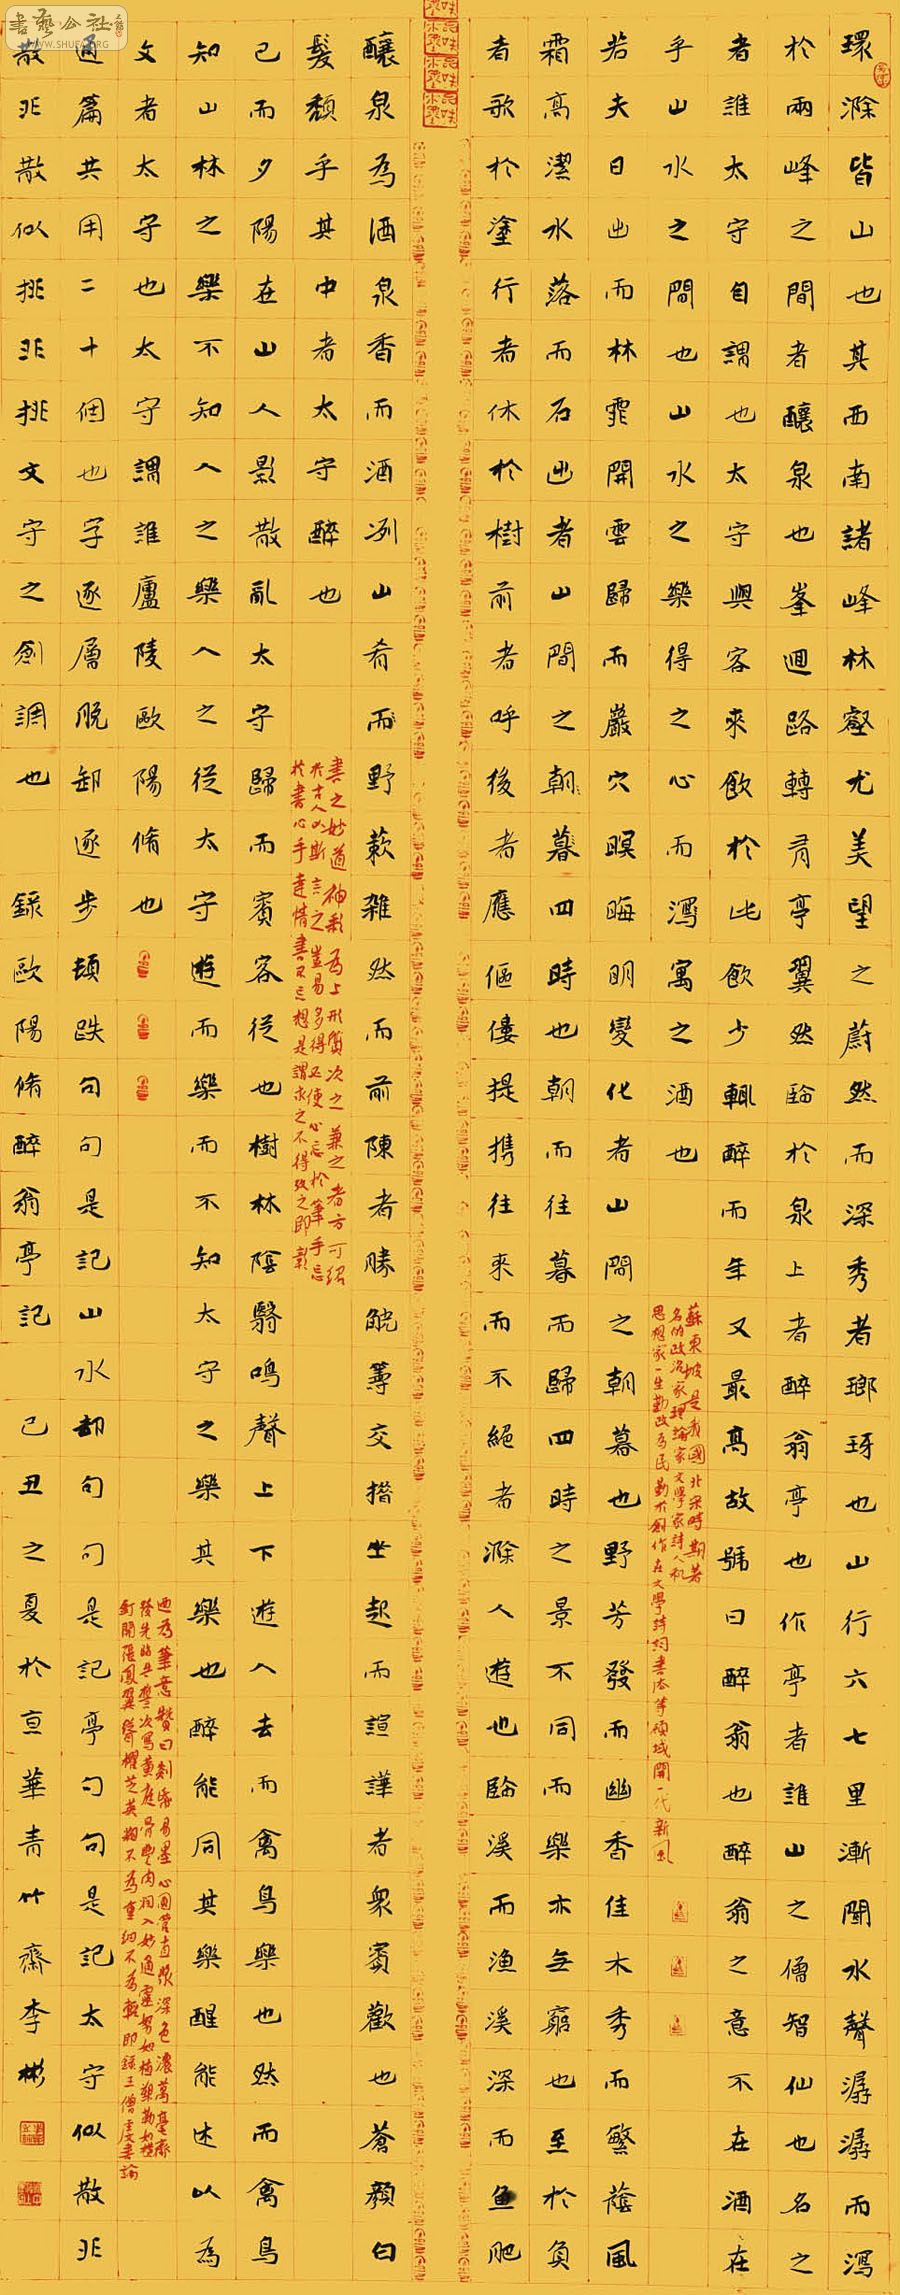 環滁皆山也其西南諸峰林壑尤美望之蔚然而深秀者瑯玡也山行六七里漸聞水聲潺潺而瀉
於兩峰之間者釀泉也峯迴路轉有亭翼然臨於泉上者醉翁亭也作亭者誰山之僧智仙也名之
者誰太守自謂也太守與客來飲於此飲少輒醉而年又最高故號曰醉翁也醉翁之意不在酒在
乎山水之間也山水之樂得之心而瀉寓之酒也
蘇東坡是我國北宋時期著
名的政治家理論家文學家詩人和
思想家一生勤政為民勤於創作在文學詩詞書法等領域開一代新風
若夫日出而林霏開雲歸而巖穴暝晦明變化者山間之朝暮也野芳發而幽香佳木秀而繁蔭風
霜高潔水落而石出者山間之朝暮四時也朝而往暮而歸四時之景不同而樂亦無窮也至於負
者歌於塗行者休於樹前者呼後者應傴僂提携往來而不絕者滁人遊也臨溪而漁溪深而魚肥
釀泉為酒泉香而酒冽山肴而野蔌雜然而前陳者勝觥籌交措坐起而諠譁者眾賓歡也蒼顏白
髮頹乎其中者太守醉也
書之妙道神彩為上形質次之兼之者方可紹
於古人以斯言之豈易多得必使心忘於筆手忘
於書心手達情書不忘想是謂求之不得攷之即彰
已而夕陽在山人影散亂太守歸而賓客從也樹林陰翳鳴聲上下遊人去而禽鳥樂也然而禽鳥
知山林之樂不知人之樂人之從太守遊而樂而不知太守之樂其樂也醉能同其樂醒能述以為
文者太守也太守謂誰廬陵歐陽脩也
為筆意贊曰剡紙易墨心圓管直漿深色濃萬毫齊
發先臨告誓次寫黃庭骨豐肉潤入妙通靈努如植槊勒如橫
釘開張鳳翼聳擢芝英粗不為重細不為輕即錄王僧虔書論
通篇共用二十個也字逐層脫卸逐步頓跌句句是記山水却句句是記亭句句是記太守似散非
散非散似排非排文守之創調也 錄歐陽脩醉翁亭記 己丑之夏於亘華青竹齋李彬
書藝公社
WWW.SHUFA.ORG